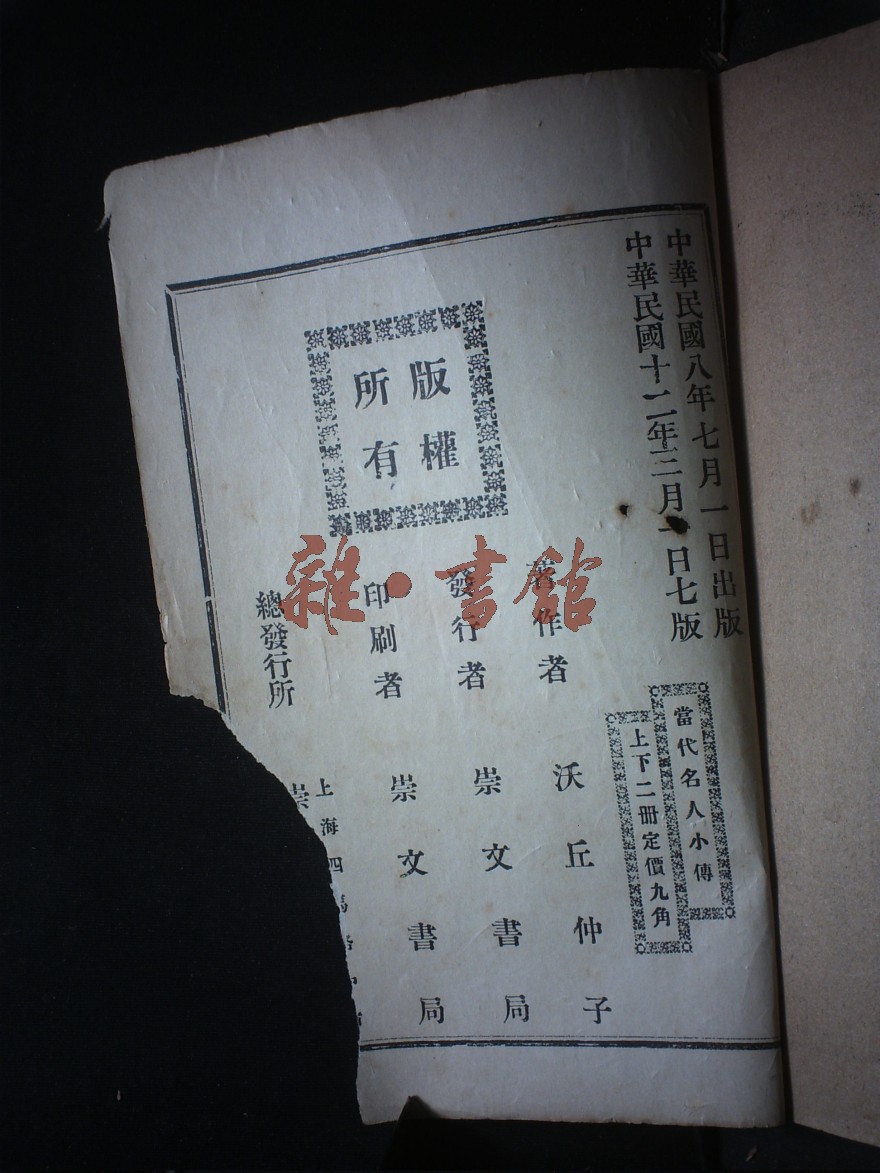 中華民國八年七月一日出版
中華民國十二年三月一日七版
當代名人小傳
上下二冊定價九角
版權
所有
著作者 沃丘仲子
發行者 崇文書局
印刷者 崇文書局
總發行所
上海四馬路中
崇
雜·書館